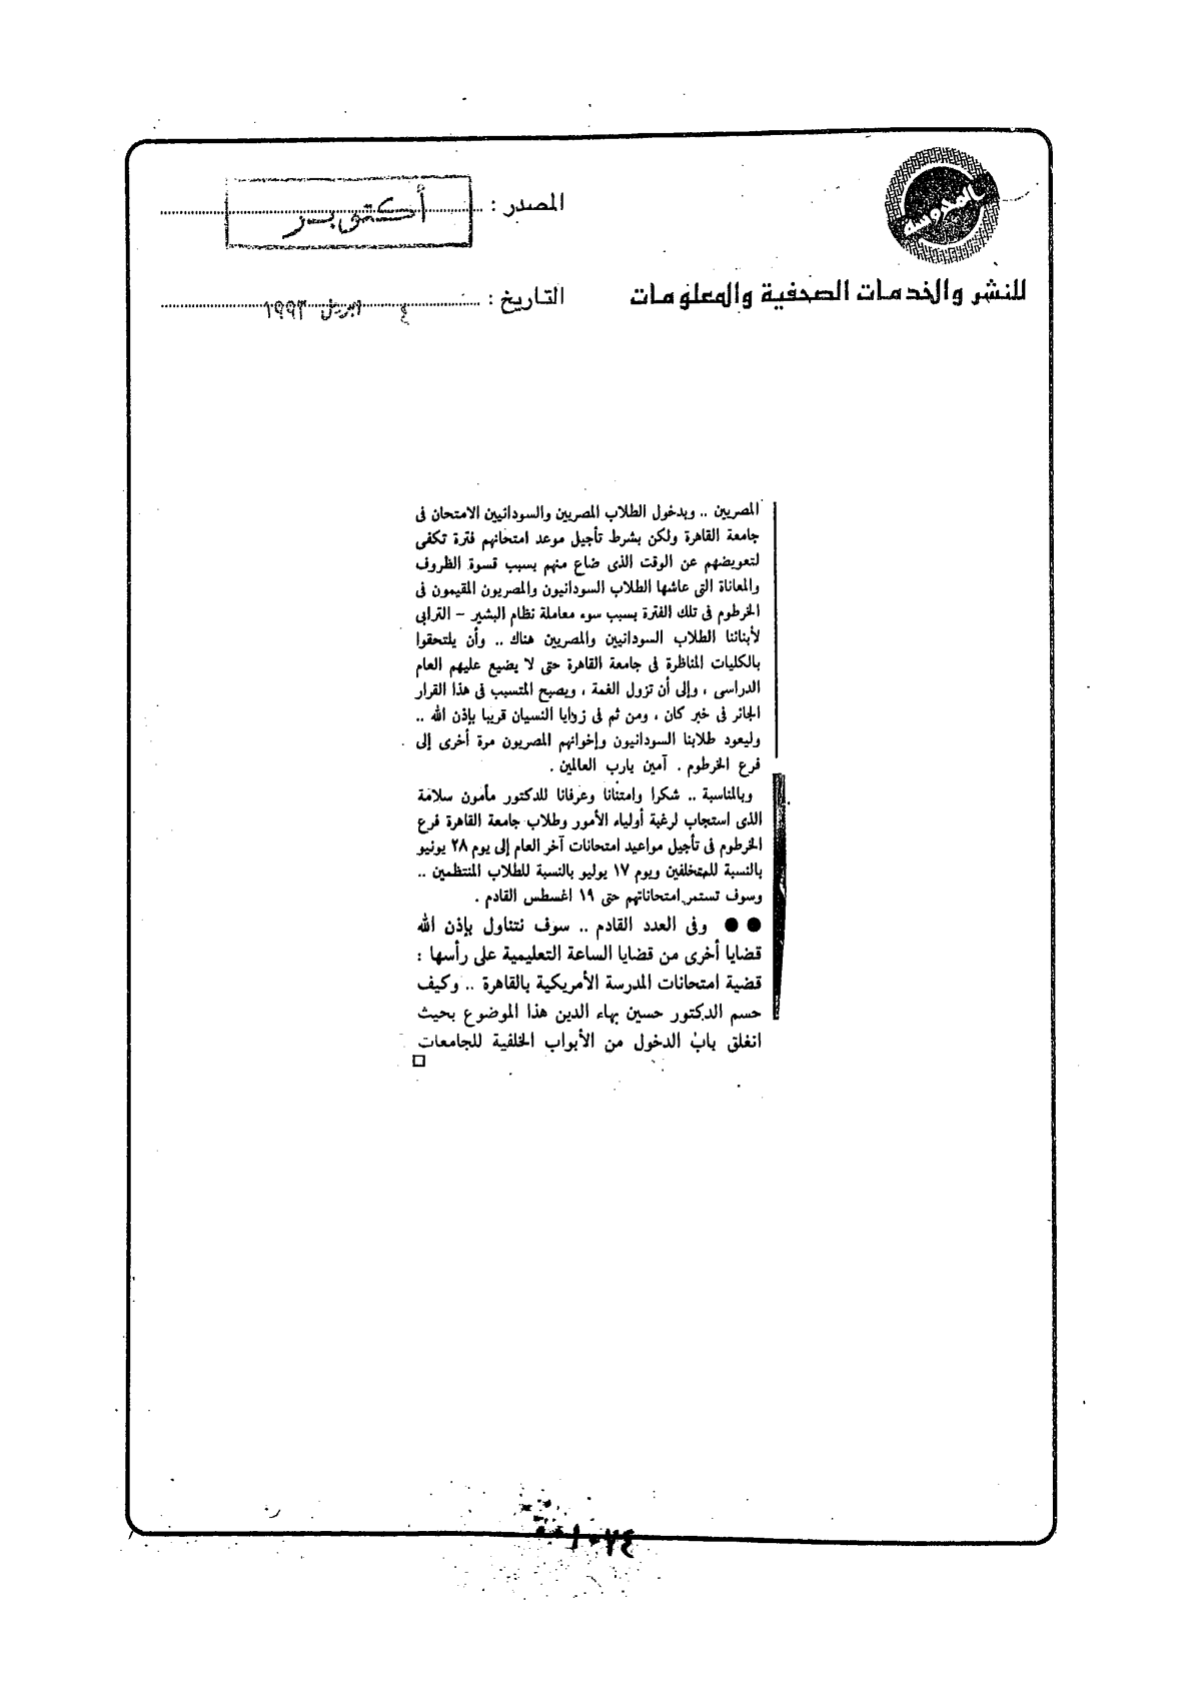 المحروسة
للنشر والخدمات الصحفية والمعلومات
المصدر : أكتوبر
التاريخ : ٤ ابريل ١٩٩٣
المصريين .. وبدخول الطلاب المصريين والسودانيين الامتحان فى
جامعة القاهرة ولكن بشرط تأجيل موعد امتحانهم فترة تكفى
لتعويضهم عن الوقت الذى ضاع منهم بسبب قسوة الظروف
والمعاناة التى عاشها الطلاب السودانيون والمصريون المقيمون فى
الخرطوم فى تلك الفترة بسبب سوء معاملة نظام البشير – الترابى
لأبنائنا الطلاب السودانيين والمصريين هناك .. وأن يلتحقوا
بالكليات المناظرة فى جامعة القاهرة حتى لا يضيع عليهم العام
الدراسى ، وإلى أن تزول الغمة ، ويصبح المتسبب فى هذا القرار
الجائر فى خبر كان ، ومن ثم فى زوايا النسيان قريبا بإذن الله ..
وليعود طلابنا السودانيون وإخوانهم المصريون مرة أخرى إلى
فرع الخرطوم . آمين يارب العالمين .
وبالمناسبة .. شكرا وامتنانا وعرفانا للدكتور مأمون سلامة
الذى استجاب لرغبة أولياء الأمور وطلاب جامعة القاهرة فرع
الخرطوم فى تأجيل مواعيد امتحانات آخر العام إلى يوم ٢٨ يونيو
بالنسبة للمتخلفين ويوم ١٧ يوليو بالنسبة للطلاب المنتظمين ..
وسوف تستمر امتحاناتهم حتى ١٩ اغسطس القادم .
●● وفى العدد القادم .. سوف نتناول بإذن الله
قضايا أخرى من قضايا الساعة التعليمية على رأسها :
قضية امتحانات المدرسة الأمريكية بالقاهرة .. وكيف
حسم الدكتور حسين بهاء الدين هذا الموضوع بحيث
انغلق باب الدخول من الأبواب الخلفية للجامعات